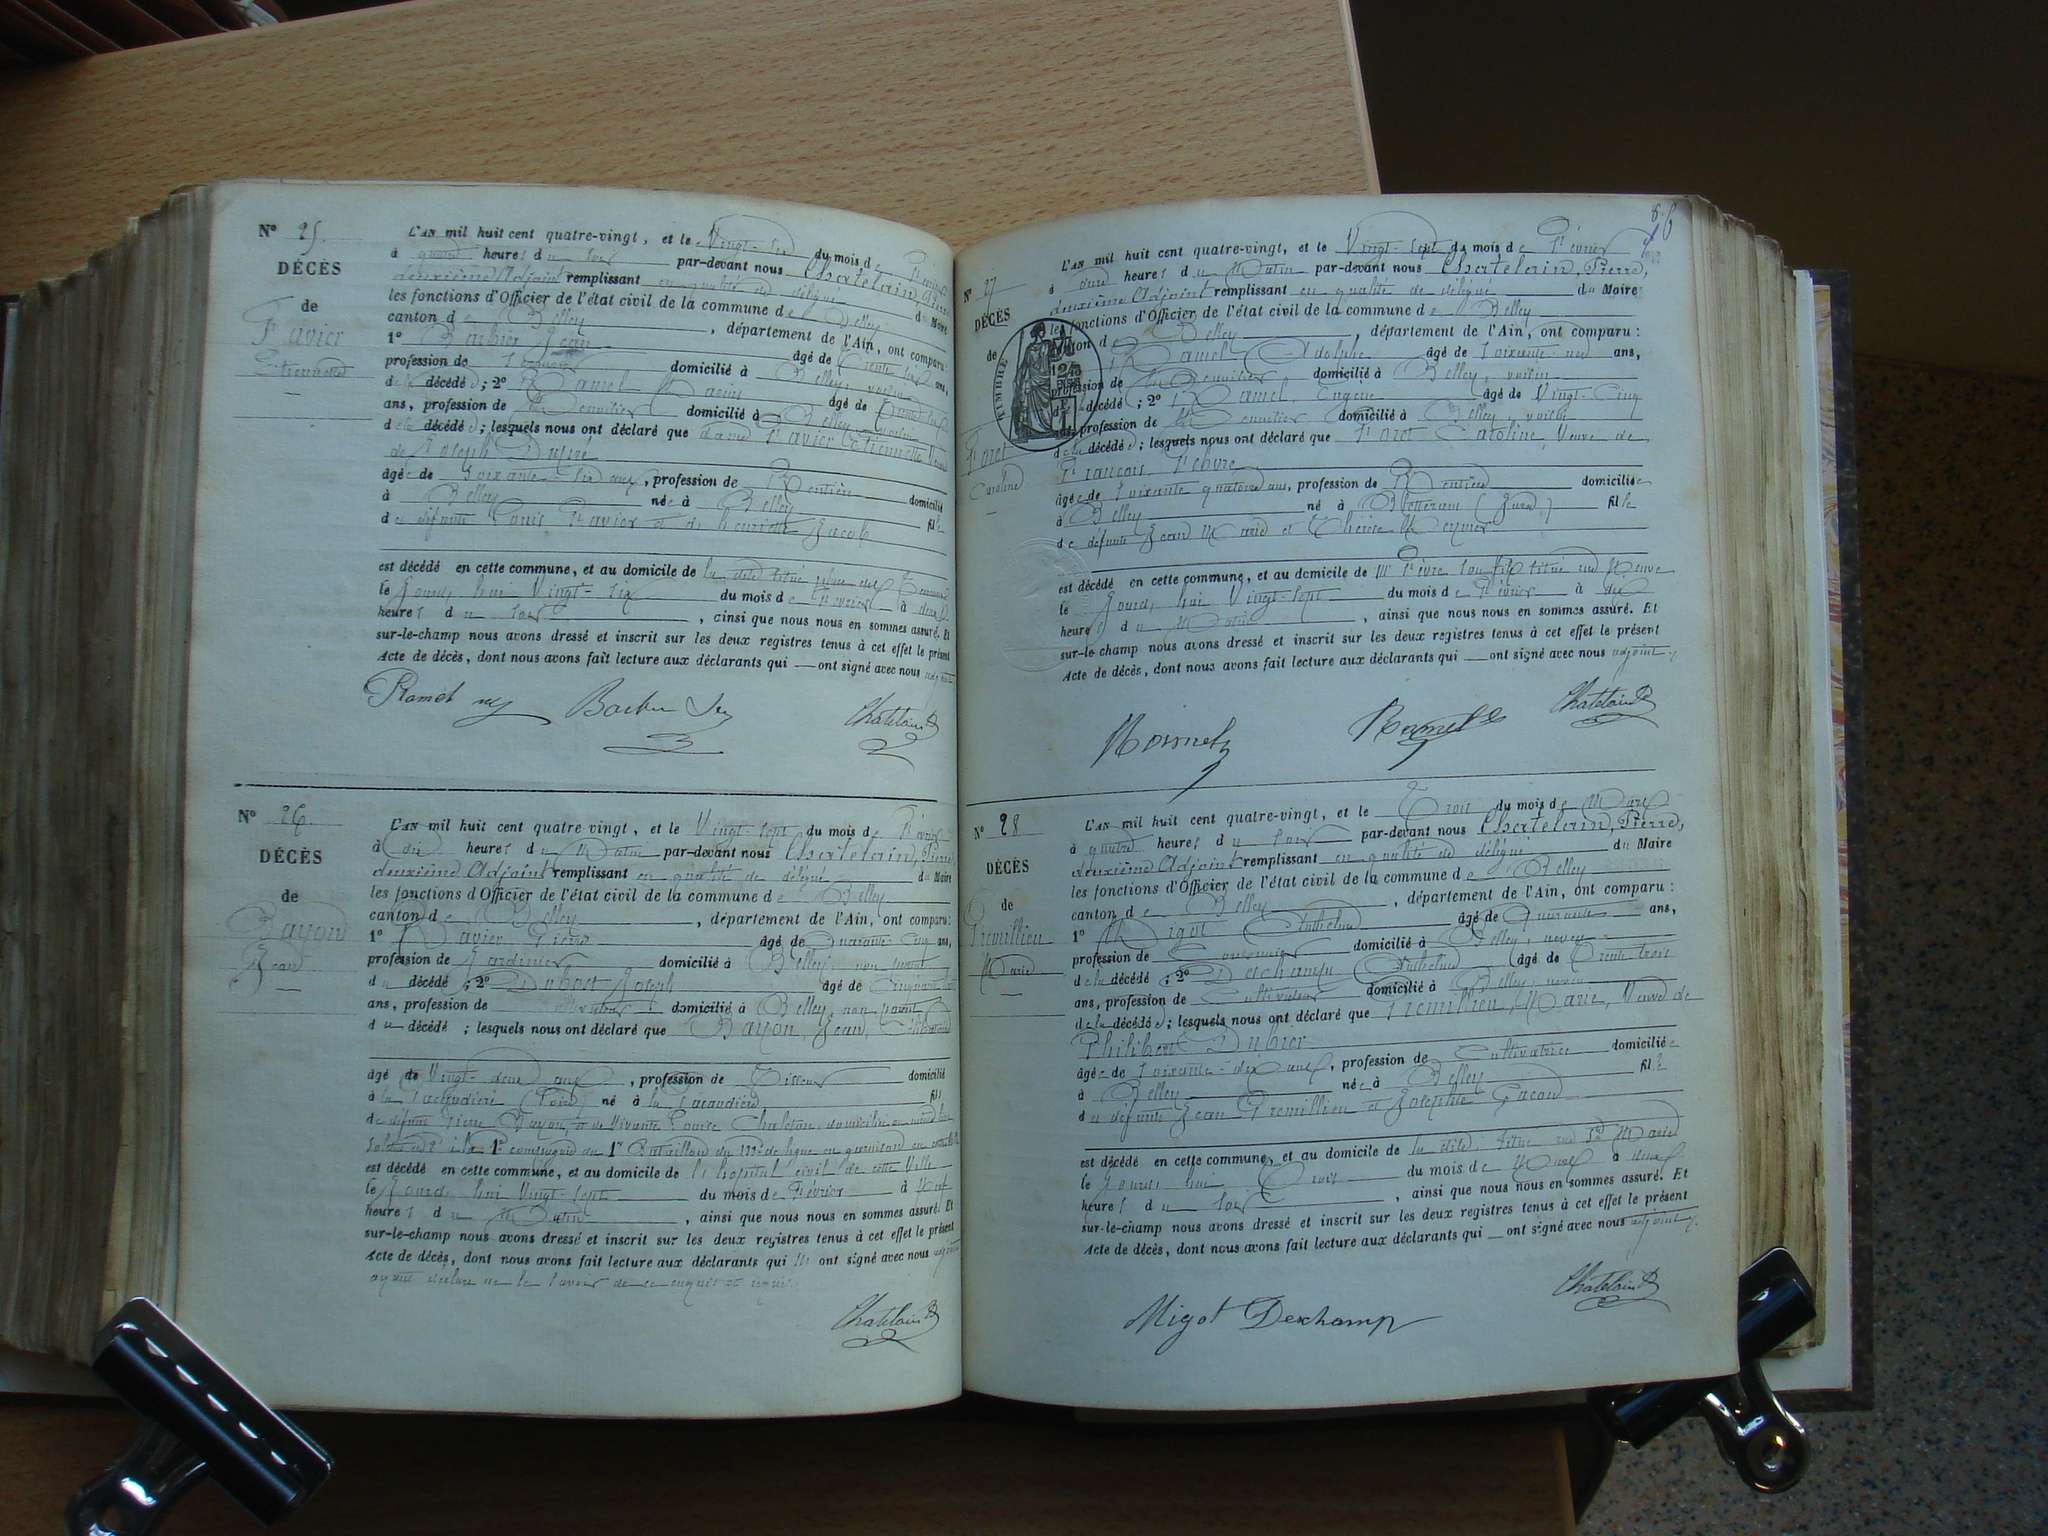 Nº 25.
DÉCÈS
de
Favier
Etiennette
L'AN mil huit cent quatre-vingt, et le Vingt-six du mois de Février
à quatre heures du soir par-devant nous Chatelain, Pierre,
deuxième Adjoint remplissant en qualité de délégué du Maire
les fonctions d'Officier de l'état civil de la commune de Belley
canton de Belley, département de l'Ain, ont comparu:
1º Barbier Jean âgé de Trente ans,
profession de domicilié à Belley, voisin
de la décédée; 2º Ramel âgé de
ans, profession de Menuisier domicilié à Belley, voisin
de la décédée; lesquels nous ont déclaré que dame Favier Etiennette Veuve
de Joseph Dupré
âgée de Soixante-six ans, profession de Rentière domiciliée
à Belley née à Belley fille
de défunts Louis Favier et de Henriette Jacob
est décédé en cette commune, et au domicile de la dite situé place des Terreaux
le Jourd'hui Vingt-six du mois de Février à deux
heures du soir, ainsi que nous nous en sommes assuré. Et
sur-le-champ nous avons dressé et inscrit sur les deux registres tenus à cet effet le présent
Acte de décès, dont nous avons fait lecture aux déclarants qui — ont signé avec nous adjoint
Ramel Barbier Jean Chatelain
Nº 26.
DÉCÈS
de
Bayon
Jean
L'AN mil huit cent quatre-vingt, et le Vingt-sept du mois de Février
à dix heures du Matin par-devant nous Chatelain, Pierre,
deuxième Adjoint remplissant en qualité de délégué du Maire
les fonctions d'Officier de l'état civil de la commune de Belley
canton de Belley, département de l'Ain, ont comparu:
1º Favier Pierre âgé de Quarante-Cinq ans,
profession de Jardinier domicilié à Belley, non parent
du décédé; 2º Dubost Joseph âgé de Cinquante
ans, profession de domicilié à Belley, non parent
du décédé; lesquels nous ont déclaré que Bayon, Jean, Célibataire
âgé de Vingt-deux ans, profession de Tisseur domicilié
à la Pacaudière (Loire) né à la Pacaudière fils
de défunt Pierre Bayon et de Vivante Louise Chaletin, domiciliée au même lieu
Soldat de 2e à la 1re compagnie du 1er Bataillon du 133e de ligne en garnison en cette Ville
est décédé en cette commune, et au domicile de l'hôpital civil de cette Ville
le Jourd'hui Vingt-sept du mois de Février à Sept
heures du Matin, ainsi que nous nous en sommes assuré. Et
sur-le-champ nous avons dressé et inscrit sur les deux registres tenus à cet effet le présent
Acte de décès, dont nous avons fait lecture aux déclarants qui n'ont signé avec nous adjoint
ayant déclaré ne le savoir de ce enquis et requis.
Chatelain
Nº 27
DÉCÈS
de
Foret
Caroline
TIMBRE
L'AN mil huit cent quatre-vingt, et le Vingt-sept du mois de Février
à onze heures du Matin par-devant nous Chatelain, Pierre,
deuxième Adjoint remplissant en qualité de délégué du Maire
les fonctions d'Officier de l'état civil de la commune de Belley
canton de Belley, département de l'Ain, ont comparu:
1º Ramel Adolphe âgé de Soixante-neuf ans,
profession de Menuisier domicilié à Belley, voisin
de la décédée; 2º Ramel, Eugène âgé de Vingt-Cinq
ans, profession de Menuisier domicilié à Belley, voisin
de la décédée; lesquels nous ont déclaré que Foret Caroline, Veuve de
François Febvre
âgée de Soixante quatorze ans, profession de Rentière domiciliée
à Belley née à Bletterans (Jura) fille
de défunts Jean Marie et Thérèse Meynier
est décédé en cette commune, et au domicile de Mr Fèvre son fils situé rue Neuve
le Jourd'hui Vingt-sept du mois de Février à dix
heures du Matin, ainsi que nous nous en sommes assuré. Et
sur-le-champ nous avons dressé et inscrit sur les deux registres tenus à cet effet le présent
Acte de décès, dont nous avons fait lecture aux déclarants qui — ont signé avec nous adjoint.
Ramel Ramel Chatelain
Nº 28
DÉCÈS
de
Premillieu
Marie
L'AN mil huit cent quatre-vingt, et le Trois du mois de Mars
à quatre heures du soir par-devant nous Chatelain, Pierre,
deuxième Adjoint remplissant en qualité de délégué du Maire
les fonctions d'Officier de l'état civil de la commune de Belley
canton de Belley, département de l'Ain, ont comparu:
1º Migot Anthelme âgé de Quarante ans,
profession de domicilié à Belley, neveu
de la décédée; 2º Deschamp Anthelme âgé de Trente trois
ans, profession de Cultivateur domicilié à Belley, neveu
de la décédée; lesquels nous ont déclaré que Premillieu, Marie, Veuve de
Philibert Dubier
âgée de Soixante-dix ans, profession de Cultivatrice domiciliée
à Belley née à Belley fille
de défunts Jean Premillieu et Josephte Gacon
est décédé en cette commune, et au domicile de la dite, située rue Ste Marie
le Jourd'hui Trois du mois de Mars à deux
heures du soir, ainsi que nous nous en sommes assuré. Et
sur-le-champ nous avons dressé et inscrit sur les deux registres tenus à cet effet le présent
Acte de décès, dont nous avons fait lecture aux déclarants qui — ont signé avec nous adjoint.
Migot Deschamp Chatelain